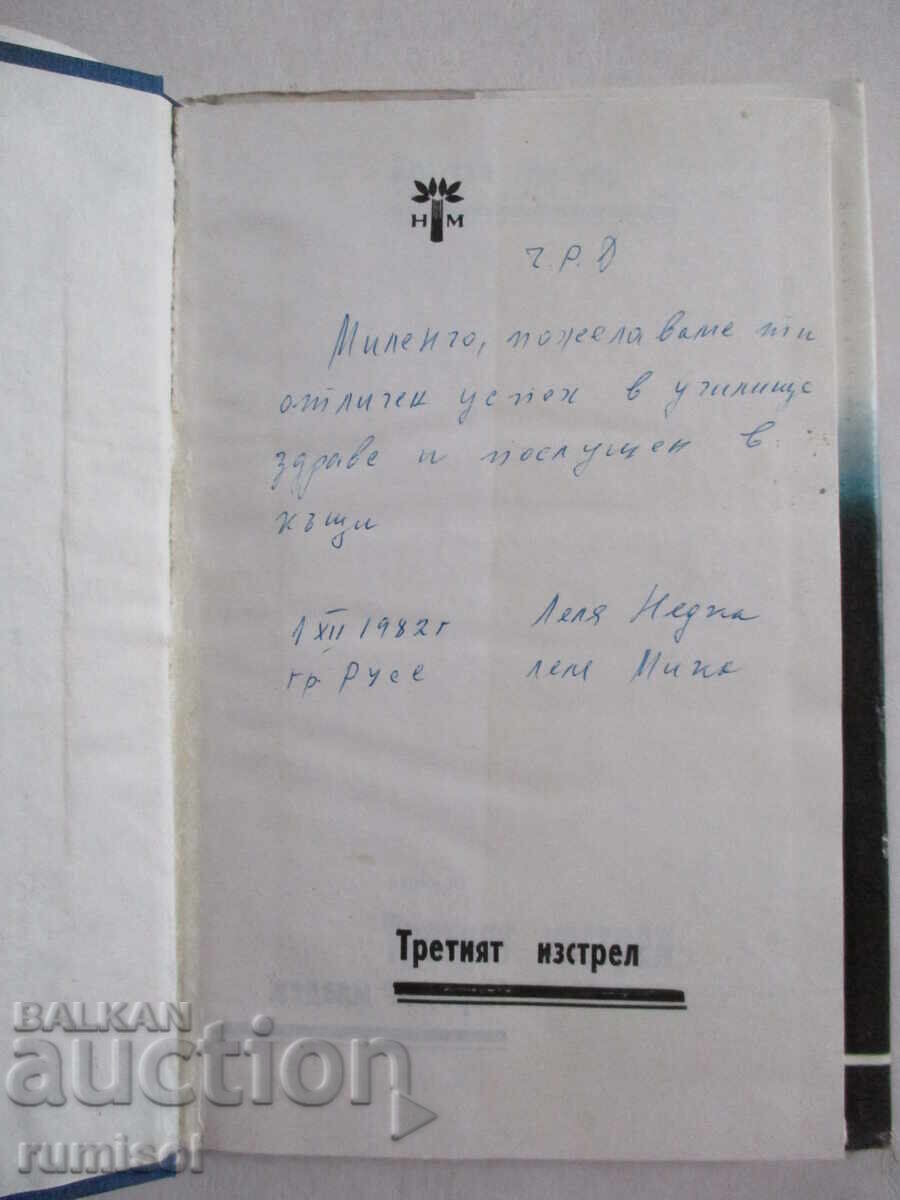 Н М
Ч.Р.Д
Миленчо, пожелаваме ти
отличен успех в училище
здраве и послушен в
къщи
1 XII 1982 г Леля Недка
гр. Русе леля Мика
Третият изстрел
BALKAN
auction
rumisol